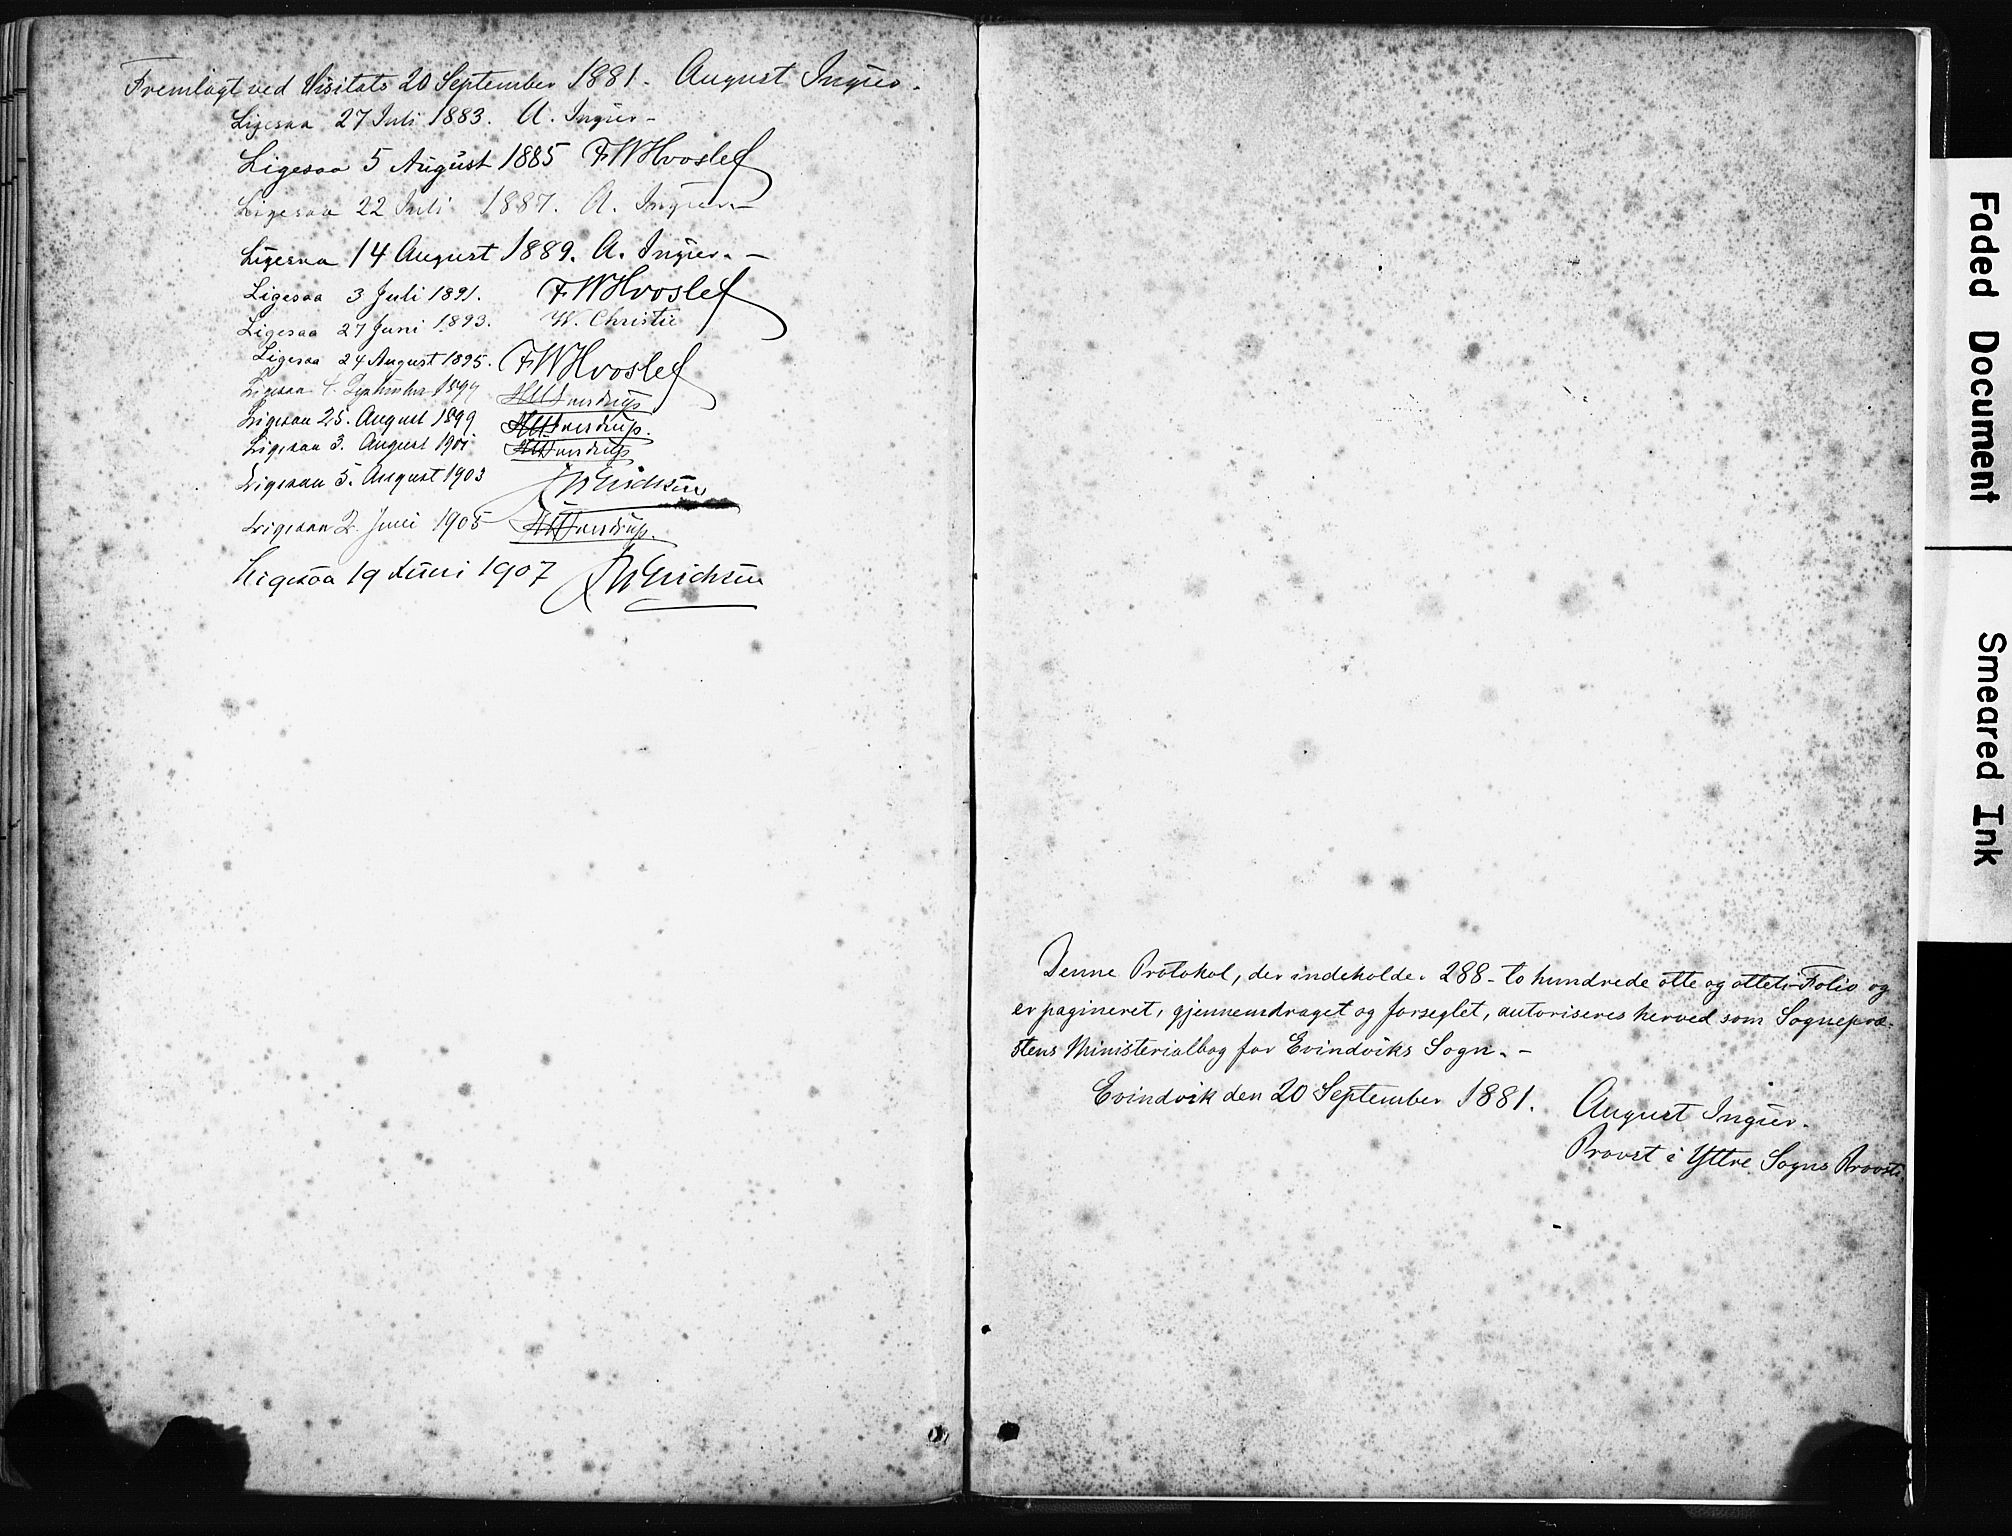 Fremlagt ved Visitats 20 September 1881. August Ingier.
Ligesaa 27 Juli 1883. A. Ingier -
Ligesaa 5 August 1885 FW Hvoslef
Ligesaa 22 Juli 1887. A. Ingier. -
Ligesaa 14 August 1889. A. Ingier. -
Ligesaa 3 Juli 1891. FW Hvoslef
Ligesaa 27 Juni 1893. W. Christie
Ligesaa 24 August 1895. FW Hvoslef
Ligesaa September
Ligesaa 25. August 1899 Sverdrup.
Ligesaa 3. August 1901 Sverdrup
Ligesaa 5. August 1903 Erichsen
Ligesaa 2. Juni 1905 Sverdrup.
Ligesaa 19 Juni 1907 Erichsen
Denne Protokol, der indeholder 288 - to hundrede otte og otteti - Folio og
er pagineret, gjennemdraget og forseglet, autoriseres herved som Sognepræ-
stens Ministerialbog for Evindviks Sogn. -
Evindvik den 20 September 1881. August Ingier.
Provst i Yttre Sogns Provsti
Faded Document
Smeared Ink